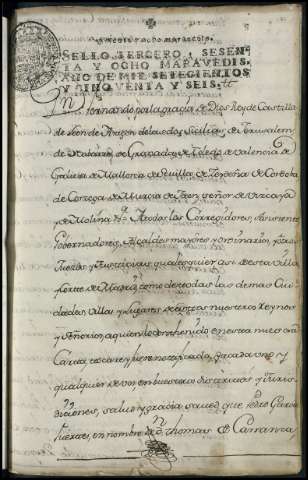 SELLO TERCERO, SESEN-
TA Y OCHO MARAVEDIS,
AÑO DE MIL SETECIENTOS
Y CINQVENTA Y SEIS.
Dn. Fernando por la gracia de Dios Rey de Castilla
de Leon de Aragon de las dos Sicilias, de Jerusalem
de Navarra de Granada de Toledo de Valencia de
Galicia de Mallorca de Sevilla de Cerdeña de Cordova
de Corcega de Murcia de Jaen, señor de Vizcaya
y de Molina &a. A todos los Corregidores, Asistente
Governadores, Alcaldes mayores y ordinarios, y otros
Juezes y Justicias qualesquier asi de esta villa
y corte de Madrid, como de todas las demas Ciu-
dades villas y lugares de estos nuestros Reynos
y Señorios, a quien lo contenido en esta nuestra
Carta tocare y fuere notificada, a cada uno y
qualquier de vos en vuestros distritos y Juris-
diciones, salud y gracia saved, que Pedro Garcia
en nombre de Dn. Thomas de Carranza